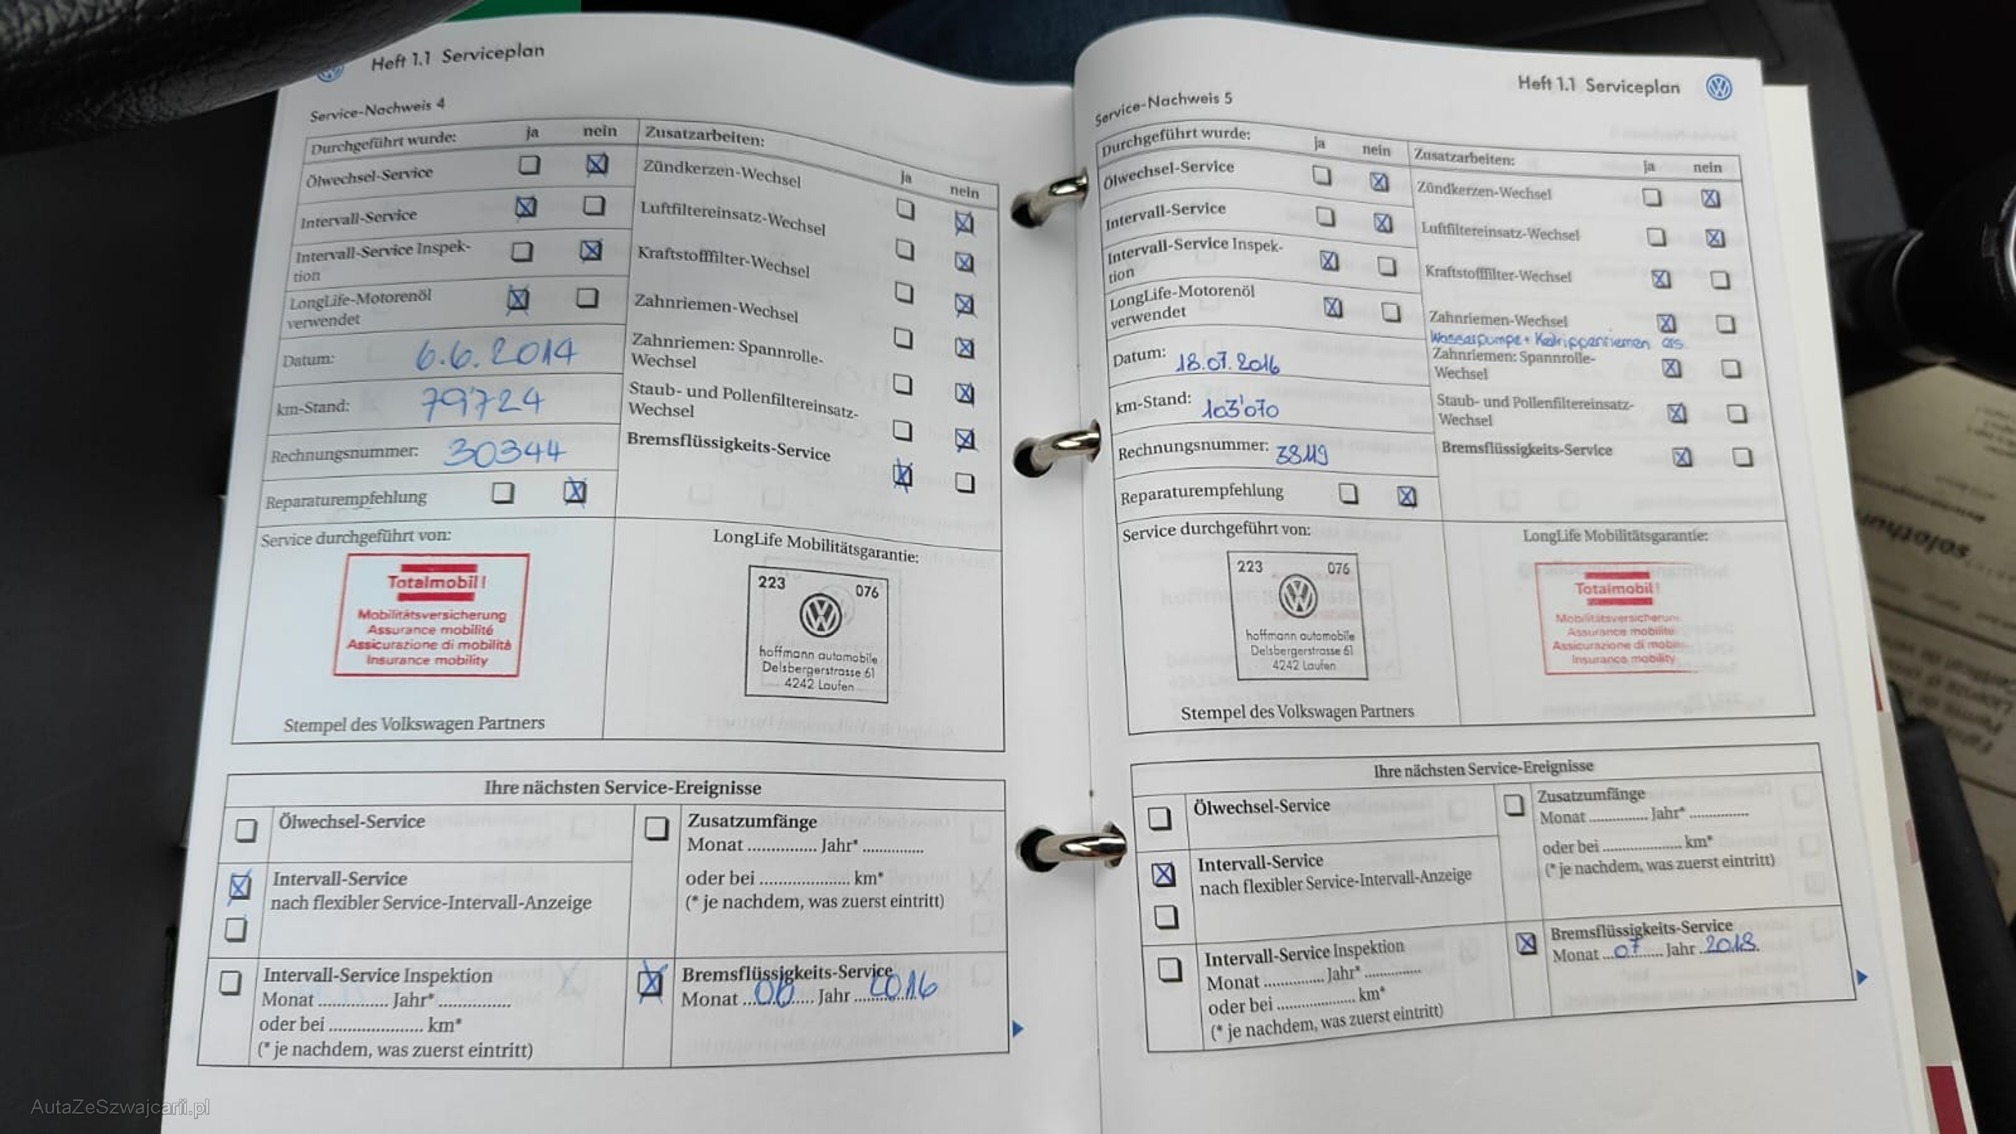 Heft 1.1 Serviceplan
Service-Nachweis 4
Durchgeführt wurde: ja nein
Ölwechsel-Service
Intervall-Service
Intervall-Service Inspek-
tion
LongLife-Motorenöl
verwendet
Datum: 6.6.2014
km-Stand: 79'724
Rechnungsnummer: 30344
Reparaturempfehlung
Zusatzarbeiten: ja nein
Zündkerzen-Wechsel
Luftfiltereinsatz-Wechsel
Kraftstofffilter-Wechsel
Zahnriemen-Wechsel
Zahnriemen: Spannrolle-
Wechsel
Staub- und Pollenfiltereinsatz-
Wechsel
Bremsflüssigkeits-Service
Service durchgeführt von:
Totalmobil!
Mobilitätsversicherung
Assurance mobilité
Assicurazione di mobilità
Insurance mobility
Stempel des Volkswagen Partners
LongLife Mobilitätsgarantie:
223 076
hoffmann automobile
Delsbergerstrasse 61
4242 Laufen
Ihre nächsten Service-Ereignisse
Ölwechsel-Service
Intervall-Service
nach flexibler Service-Intervall-Anzeige
Intervall-Service Inspektion
Monat .............. Jahr* ..............
oder bei ................... km*
(* je nachdem, was zuerst eintritt)
Zusatzumfänge
Monat .............. Jahr* ............
oder bei ................... km*
(* je nachdem, was zuerst eintritt)
Bremsflüssigkeits-Service
Monat ...06.... Jahr ...2016
Heft 1.1 Serviceplan
Service-Nachweis 5
Durchgeführt wurde: ja nein
Ölwechsel-Service
Intervall-Service
Intervall-Service Inspek-
tion
LongLife-Motorenöl
verwendet
Datum: 18.07.2016
km-Stand: 103'070
Rechnungsnummer: 38119
Reparaturempfehlung
Zusatzarbeiten: ja nein
Zündkerzen-Wechsel
Luftfiltereinsatz-Wechsel
Kraftstofffilter-Wechsel
Zahnriemen-Wechsel
Wasserpumpe + Keilrippenriemen
Zahnriemen: Spannrolle-
Wechsel
Staub- und Pollenfiltereinsatz-
Wechsel
Bremsflüssigkeits-Service
Service durchgeführt von:
223 076
hoffmann automobile
Delsbergerstrasse 61
4242 Laufen
Stempel des Volkswagen Partners
LongLife Mobilitätsgarantie:
Totalmobil!
Mobilitätsversicherun
Assurance mobilité
Assicurazione di mobil
Insurance mobility
Ihre nächsten Service-Ereignisse
Ölwechsel-Service
Intervall-Service
nach flexibler Service-Intervall-Anzeige
Intervall-Service Inspektion
Monat .............. Jahr* ..............
oder bei ................... km*
(* je nachdem, was zuerst eintritt)
Zusatzumfänge
Monat .............. Jahr* ..............
oder bei ................... km*
(* je nachdem, was zuerst eintritt)
Bremsflüssigkeits-Service
Monat ...07..... Jahr ..2018.
solothur
AutaZeSzwajcarii.pl